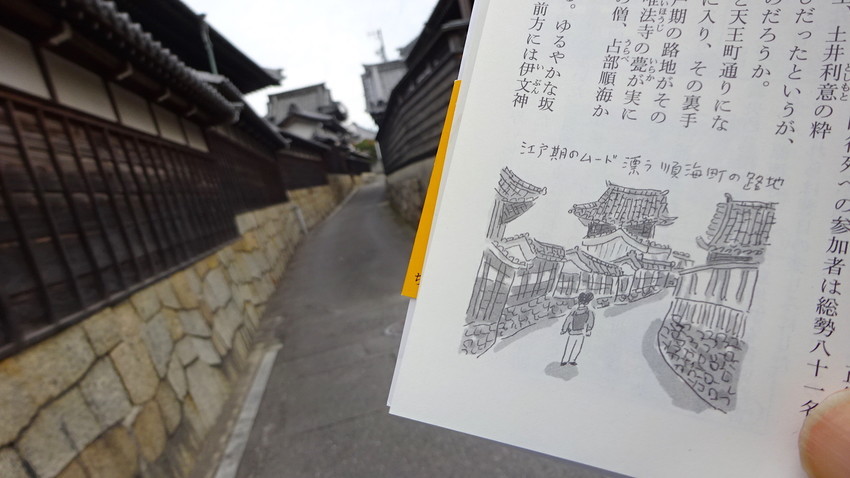 行列への参加者は総勢八十一名
土井利意の粋
としもと
だったというが、
のだろうか。
と天王町通りにな
に入り、その裏手
戸期の路地がその
唯法寺の甍が実に
いほうじ いらか
の僧、占部順海か
うらべ
る。ゆるやかな坂
前方には伊文神
いぶん
江戸期のムード漂う順海町の路地